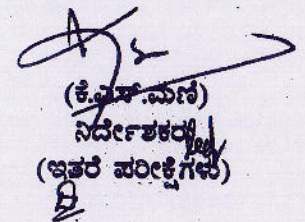 (ಕೆ.ಎಸ್.ಮಣಿ)
ನಿರ್ದೇಶಕರು
(ಇತರೆ ಪರೀಕ್ಷೆಗಳು)